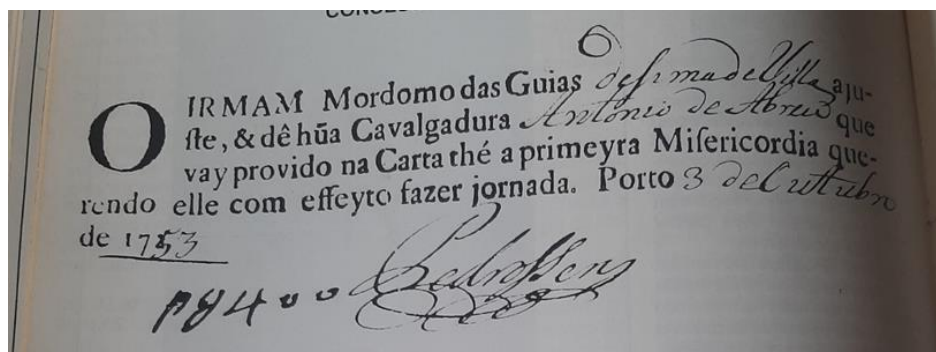 O IRMAM Mordomo das Guias desima de Villa aju-
ſte, & dê hũa Cavalgadura Antonio de Abreu que
vay provido na Carta thé a primeyra Miſericordia que-
rendo elle com effeyto fazer jornada. Porto 3 de Outubro
de 1753